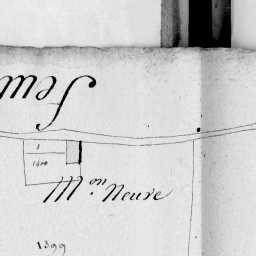 1
1400
M.on Neuve
1399